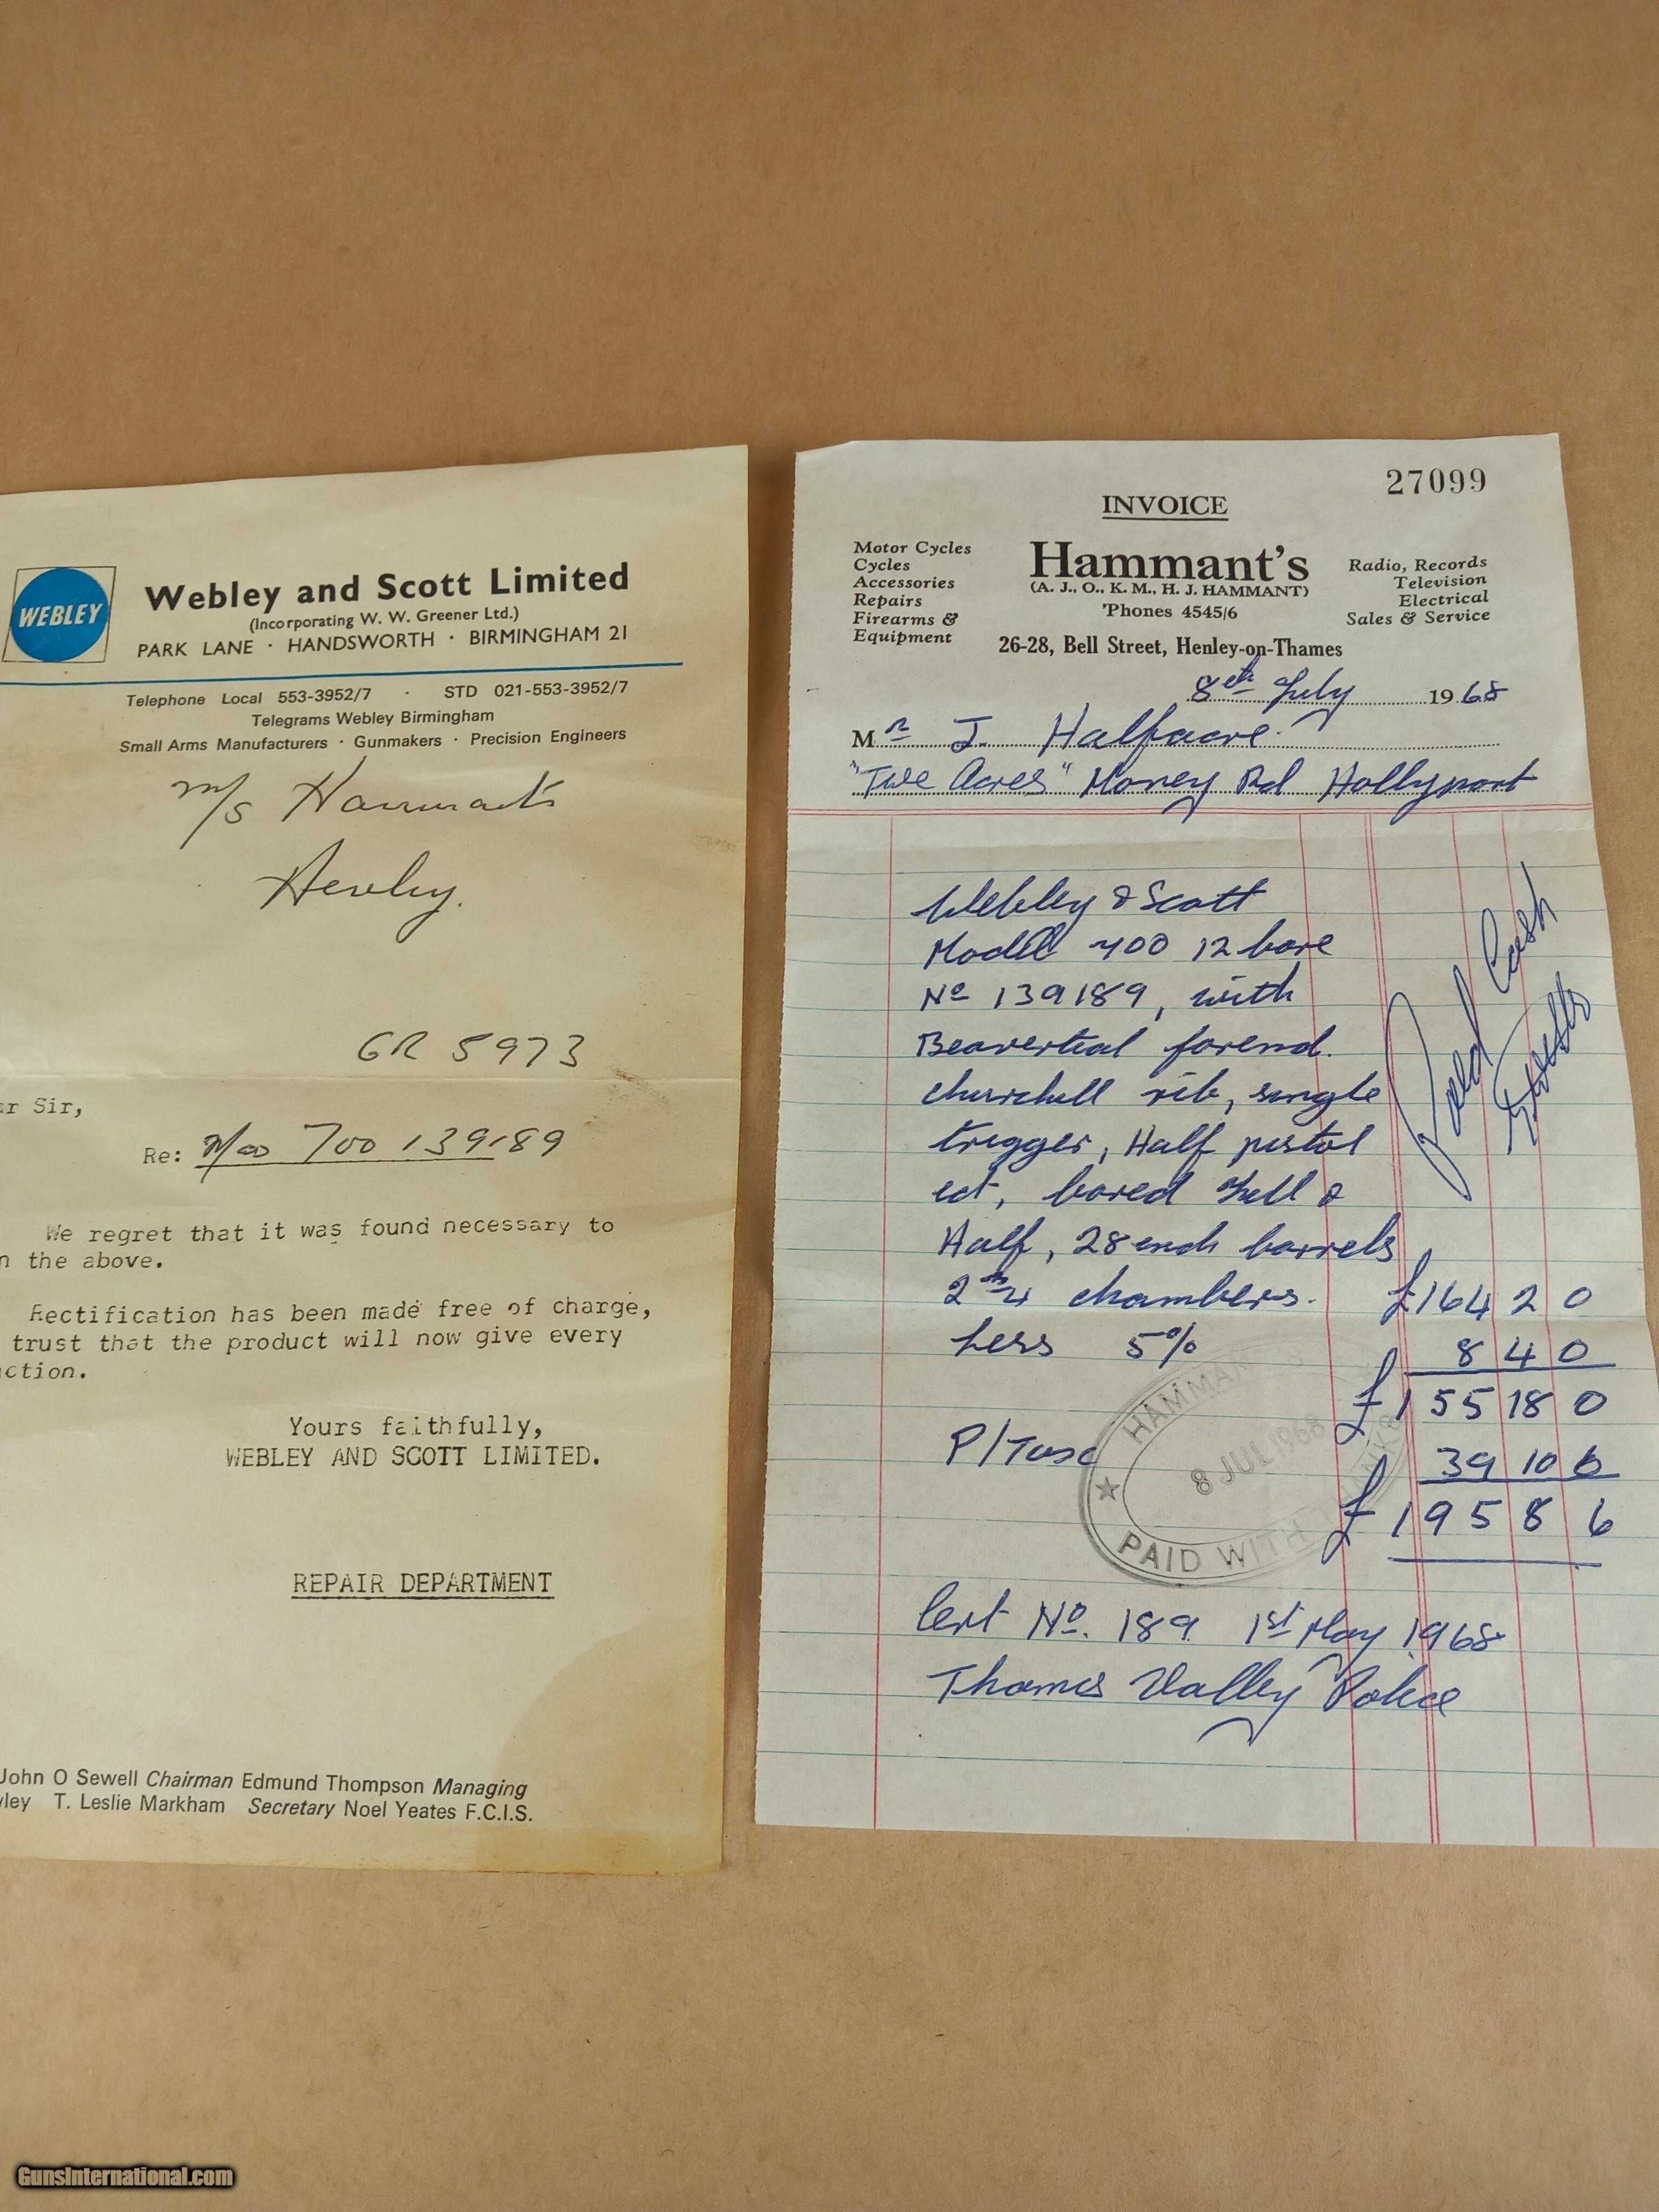 WEBLEY
Webley and Scott Limited
(Incorporating W. W. Greener Ltd.)
PARK LANE · HANDSWORTH · BIRMINGHAM 21
Telephone Local 553-3952/7 · STD 021-553-3952/7
Telegrams Webley Birmingham
Small Arms Manufacturers · Gunmakers · Precision Engineers
M/S Hammants
Henley.
GR 5973
r Sir,
Re: Mod 700 139189
We regret that it was found necessary to
n the above.
Rectification has been made free of charge,
trust that the product will now give every
ction.
Yours faithfully,
WEBLEY AND SCOTT LIMITED.
REPAIR DEPARTMENT
John O Sewell Chairman Edmund Thompson Managing
ley T. Leslie Markham Secretary Noel Yeates F.C.I.S.
27099
INVOICE
Motor Cycles
Cycles
Accessories
Repairs
Firearms &
Equipment
Hammant's
(A. J., O., K. M., H. J. HAMMANT)
'Phones 4545/6
26-28, Bell Street, Henley-on-Thames
Radio, Records
Television
Electrical
Sales & Service
8th July 1968
Mr J. Halfacre.
"Two Acres" Money Rd Hollyport
Webley & Scott
Model 700 12 bore
No 139189, with
Beavertail forend.
Churchill rib, single
trigger, Half pistol
ect, bored Full &
Half, 28 inch barrels
2 3/4 chambers. £164 2 0
Less 5% 8 4 0
£155 18 0
P/Tax 39 10 6
£195 8 6
Paid Cash
HAMMAN
8 JUL 1968
PAID WITH
Cert No. 189 1st May 1968
Thames Valley Police
GunsInternational.com